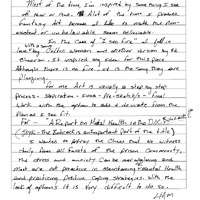 Most of the time I'm inspired by something I see
or hear or read. A lot of the time I produce
fantasy art because I like to make the non-
existent or unbelievable seem believable.
In the case of "I see fire" I fell in
with a song
love by
Celtic woman and another version by Ed
Sheeran. It inspired my idea for this piece
Although there is no fire it is the song they are
playing.
For me Art is usually a step by step
process. Inspiration - execution. I also
work with the option to add or deviate from the
plan as I see fit.
For A Report on Mental Health in the D.O.C. Redacted
(Yes, the Redacted is an important part of the title)
I wanted to portray the chaos that we witness
daily from all facets of the prison community,
the stress and anxiety can be overwhelming and
most are not practiced in maintaining mental health
and practicing positive coping strategies with the
lack of options it is very difficult to do so.